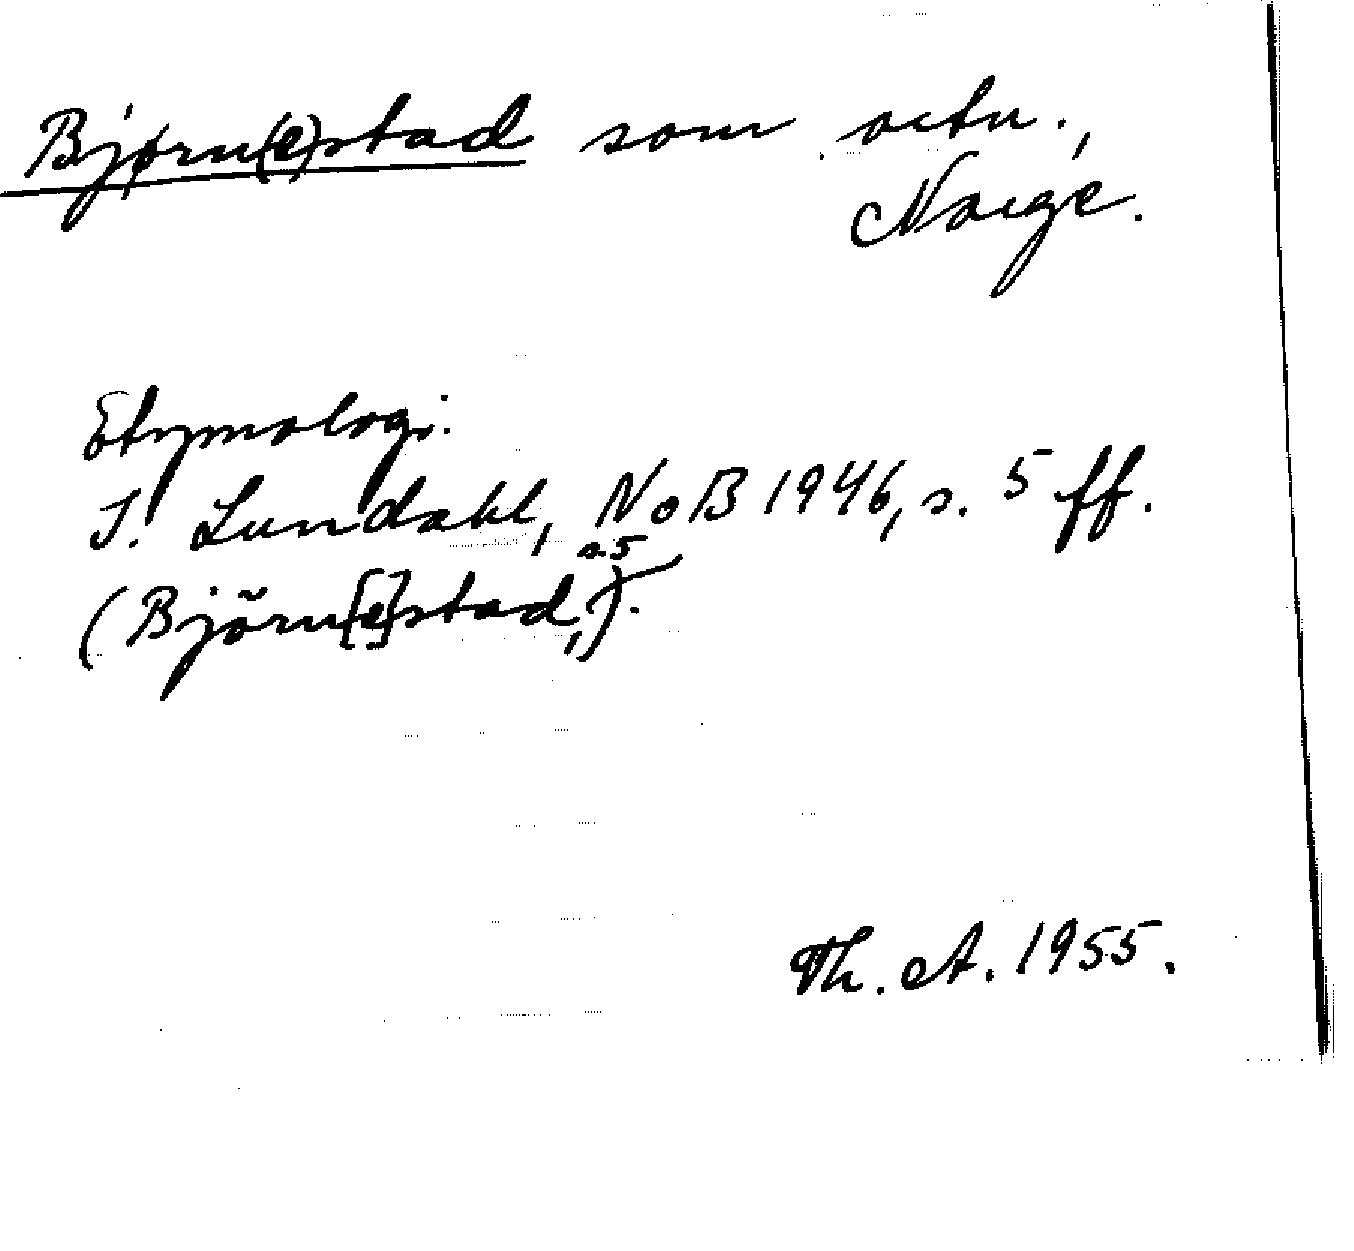 Bjørn(e)stad som ortn.,
Norge.
Etymologi.
I. Lundahl, NoB 1946, s. 5 ff.
(Björn[e]stad, s. 5).
Th. A. 1955.